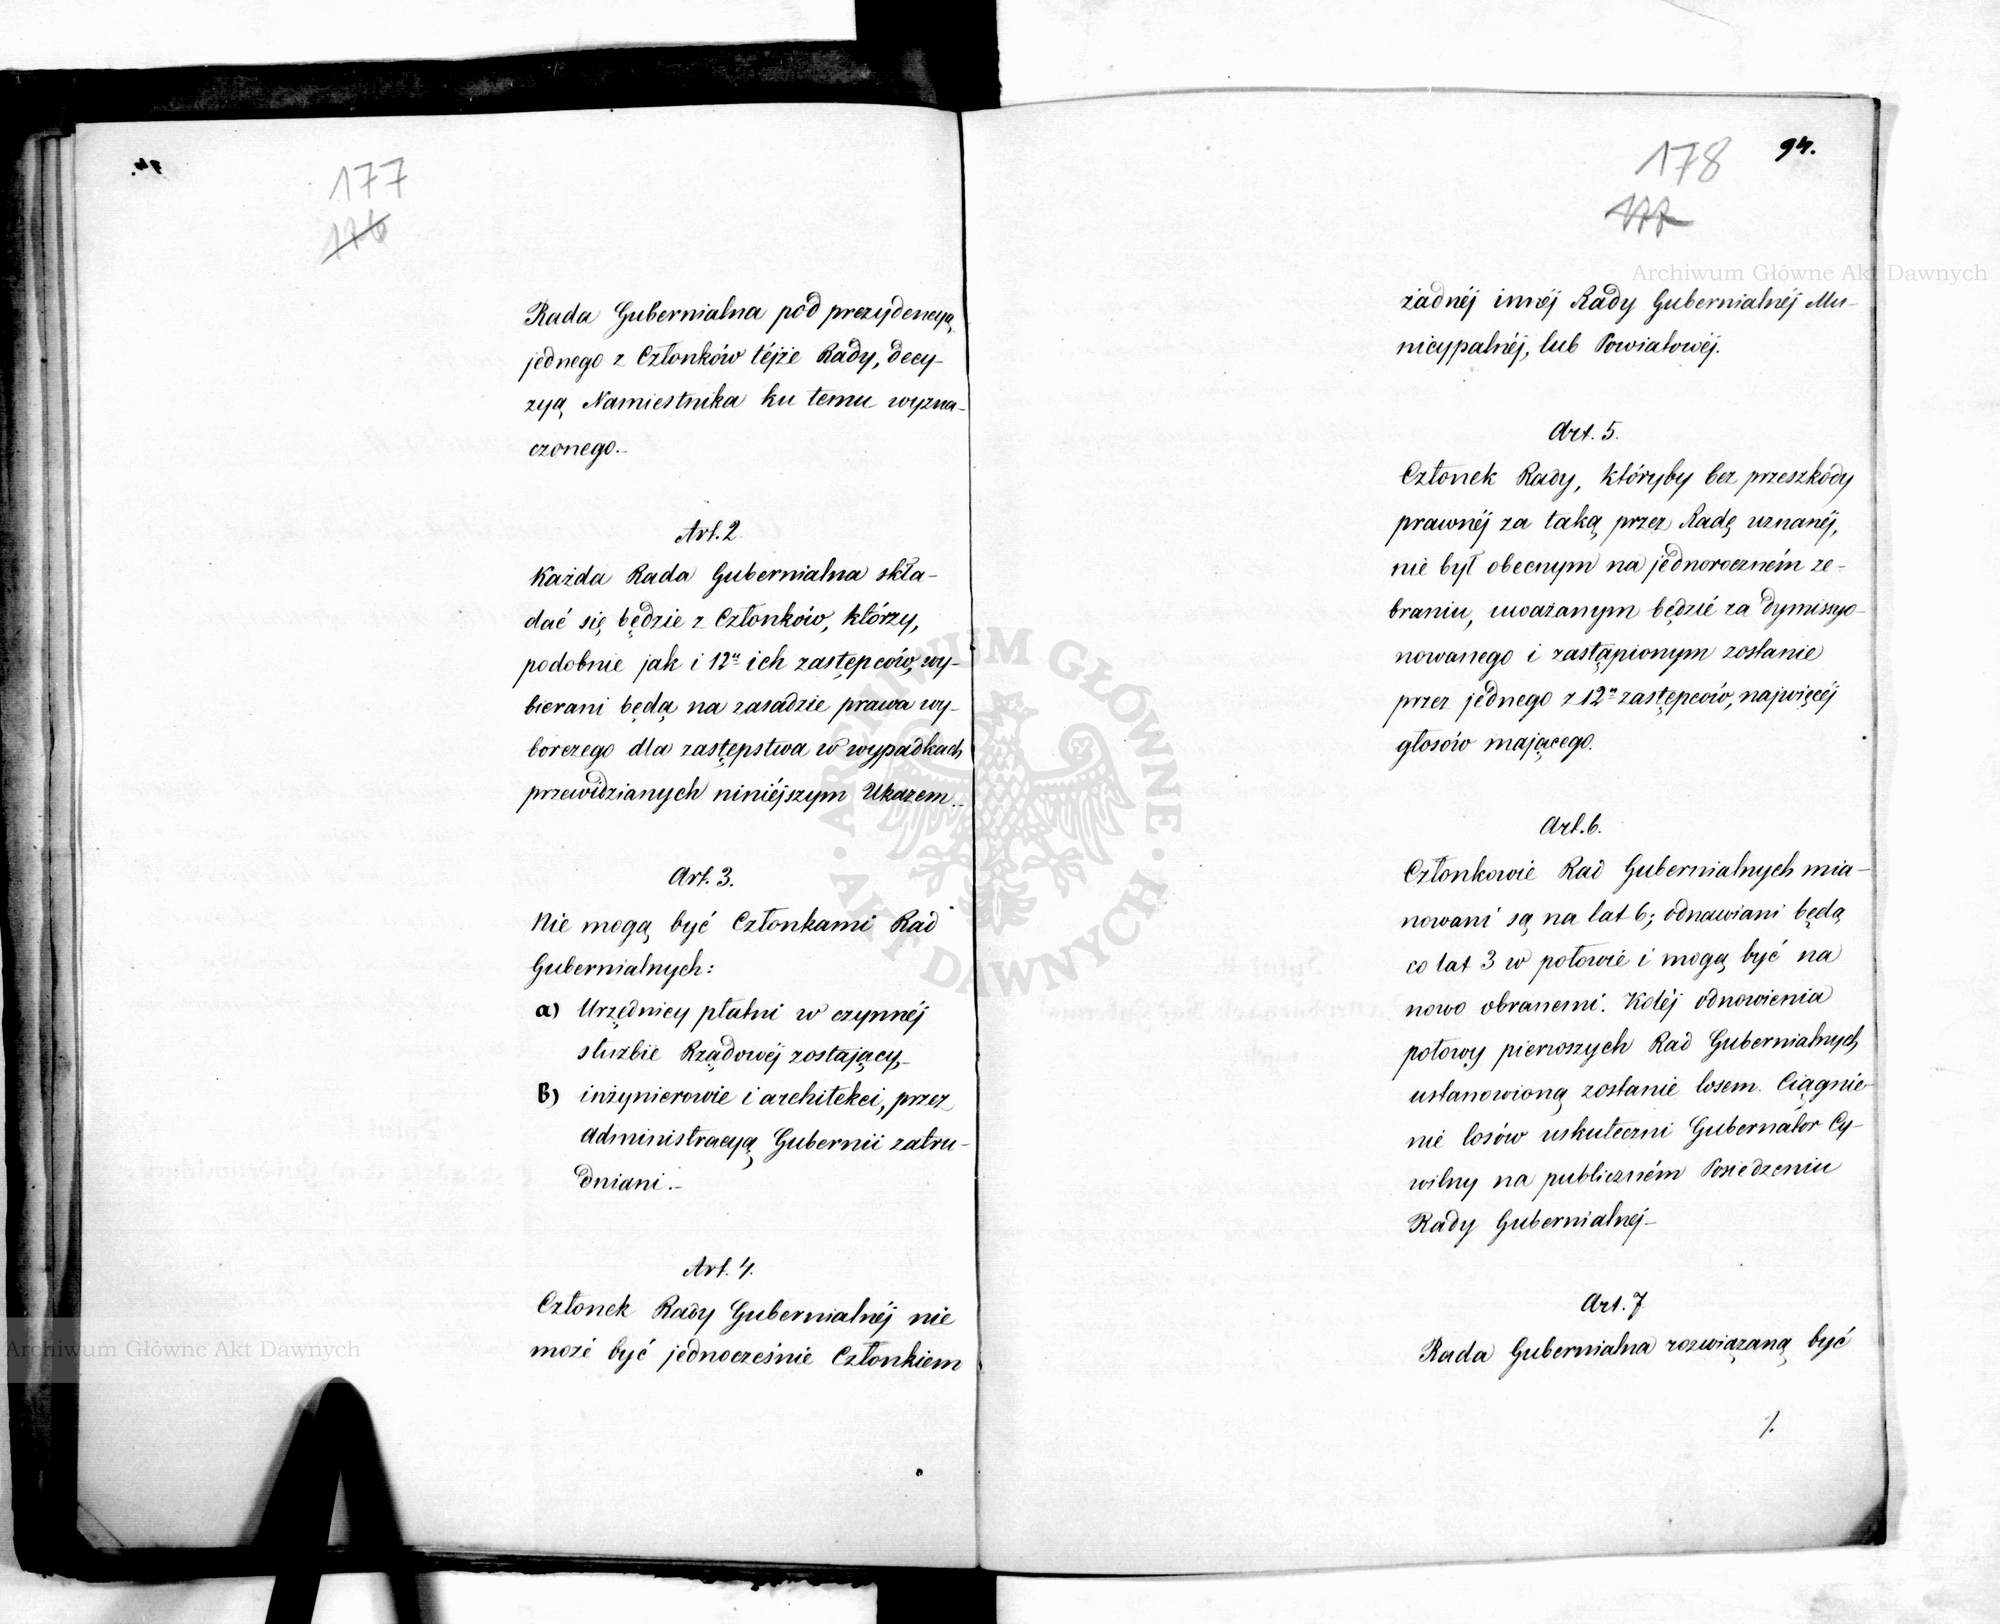 177
176
Rada Gubernialna pod prezydencyą
jednego z Członków téjże Rady, decy-
zyą Namiestnika ku temu wyzna-
czonego.-
Art. 2.
Każda Rada Gubernialna skła-
dać się będzie z Członków, którzy,
podobnie jak i 12u ich zastępców, wy-
bierani będą na zasadzie prawa wy-
borczego dla zastępstwa w wypadkach
przewidzianych niniéjszym Ukazem.-
Art. 3.
Nie mogą być Członkami Rad
Gubernialnych:
a) Urzędnicy płatni w czynnéj
służbie Rządowéj zostający,-
b) inżynierowie i architekci, przez
Administracyą Gubernii zatru-
dniani.-
Art. 4.
Członek Rady Gubernialnéj nie
może być jednocześnie Członkiem
178
177
94.
żadnéj innéj Rady Gubernialnéj Mu-
nicypalnéj, lub Powiatowéj.
Art. 5.
Członek Rady, któryby bez przeszkody
prawnéj za taką przez Radę uznanéj,
nie był obecnym na jednoroczném ze-
braniu, uważanym będzie za dymissyo-
nowanego i zastąpionym zostanie
przez jednego z 12u zastępców, najwięcéj
głosów mającego.
Art. 6.
Członkowie Rad Gubernialnych mia-
nowani są na lat 6; odnawiani będą
co lat 3 w połowie i mogą być na
nowo obranemi. Koléj odnowienia
połowy pierwszych Rad Gubernialnych
ustanowioną zostanie losem. Ciągnie-
nie losów uskuteczni Gubernator Cy-
wilny na publiczném Posiedzeniu
Rady Gubernialnéj-
Art. 7
Rada Gubernialna rozwiązaną być
/.
Archiwum Główne Akt Dawnych
Archiwum Główne Akt Dawnych
ARCHIWUM GŁÓWNE
AKT DAWNYCH